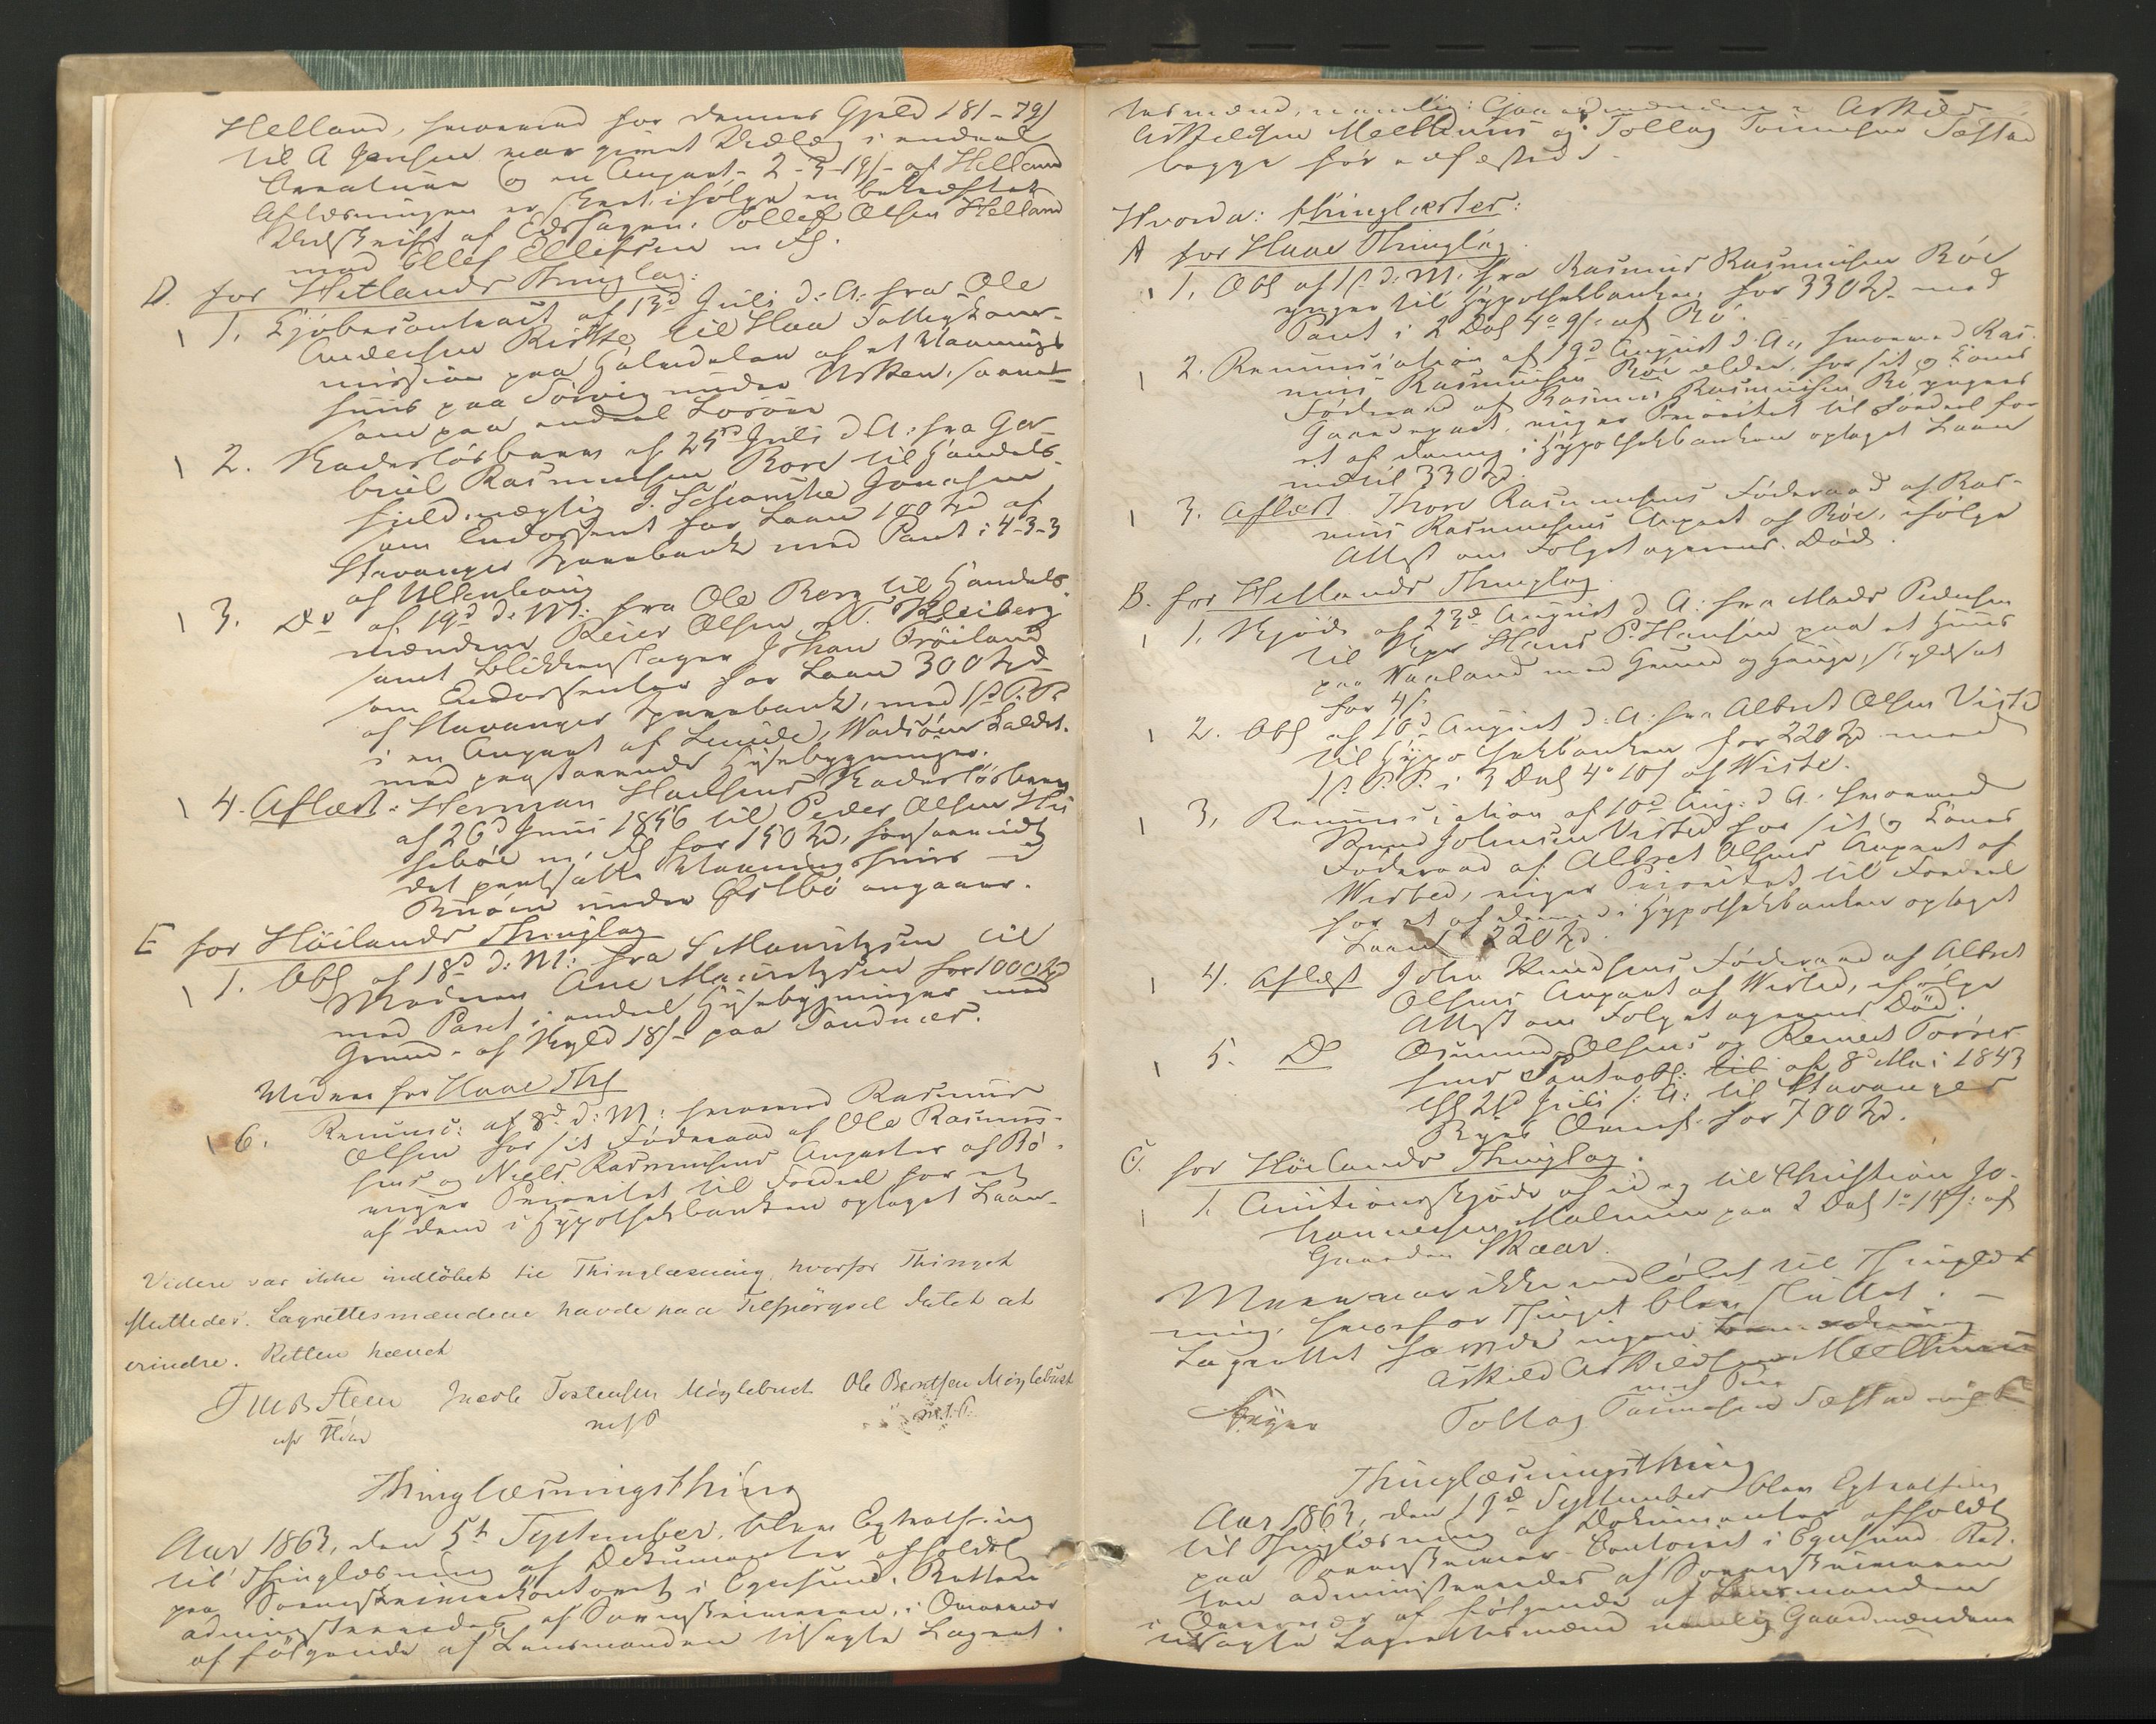 Helland, hvorved for dennes Gjeld 181 - 79/
til A Jensen var givet Udlæg i endeel
Creaturer og en Anpart 2-3-19/- af Helland
Aflæsningen er skeet ifølge en bekræftet
Udskrift af Edssagen: Tollef Olsen Helland
mod Ellef Ellefsen m. fl.
D. for Hetlands Thinglag:
1. Kjøbecontract af 13d Juli d: A: fra Ole
Andersen til Haa Fattigkom-
mission paa Halvdelen af et Vaanings
huus paa Sørvig under Usken, samt
paa endeel Losøre
2. Skadesløsbrev af 25d Juli d A: fra Ga-
briel Rasmussen Rore til Handels-
fuldmægtig J. Schanche Jonassen
som Endossent for Laan 100 Spd af
Stavanger Sparebank med Pant i 4-3-3
af Ullenhoug
3. Do af 19d d: M: fra Ole Berg til Handels-
mændene Reier Olsen og T. Kleiberg
samt Blikkenslager Johan Frøiland
som Endossenter for Laan 300 Spd
af Stavanger Sparebank, med 1st P. Pr
i en Anpart af Lunde, Wadsøen kaldet.
med paastaaende Huusebygninger.
4. Aflæst: Herman Skadesløsbrev
af 26d Juni 1856 til Peder Olsen
m. fl for 150 Spd, forsaavidt
det pantsatte Vaaningshuus i
under Østbø angaaer.
E for Høilands Thinglag
1. Obl af 18d d: M: fra S Mauritzsen til
Madame Ane Mauritzsen for 1000 Spd
med Pant i endeel Huusebygninger med
Grund - af Skyld 18/- paa Sandnæs.
Videre for Haae Thgl
6. Renunc: af 8d d: M: hvorved Rasmus
Olsen for sit Føderaad af Ole Rasmus-
sens og Niels Rasmussens Anparter af Bø
viger Prioritet til Fordeel for et
af dem i Hypothekbanken optaget Laan
Videre var ikke indløbet til Thinglæsning, hvorfor Thinget
sluttedes. Lagrettesmændene havde paa Tilspørgsel Intet at
erindre. Retten hævet
Steen Jacob Tostensen Møglebust Ole Berntsen Møglebust
m f P m. f. P.
Thinglæsningsthing
Aar 1863, den 5te September blev Extrathing
til Thinglæsning af Dokumenter afholdt
paa Sorenskriverkontoret i Egersund. Retten
administreredes af Sorenskriveren, i Overvær
af følgende af Lensmanden tilsagte Lagret-
tesmænd, nemlig: Gaardmændene Askild
Askildsen Mellemuus og Tollag Tønnesen Sæstad
begge før edfæstede.
Hvorda: thinglæstes:
A for Haae Thinglag.
1. Obl af 1st d: M. fra Rasmus Rasmussen Bøe
yngre til Hypothekbanken for 330 Spd med
Pant i 2 Dal 4o 9/- af Bø.
2. Renunciation af 19d August d: A:, hvorved Ras-
mus Rasmussen Bøe ældre, for sit og Kones
Føderaad af Rasmus Rasmussen Bø yngres
Gaardepart, viger Prioritet til Fordeel for
et af denne i Hypothekbanken optaget Laan
indtil 330 Spd
3. Aflæst Thore Rasmussens Føderaad af Ras-
mus Rasmussens Anpart af Bøe, ifølge
Attest om Folgetagerens Død.
B. for Hetlands Thinglag
1. Skjøde af 23d August d A: fra Mads Pedersen
til Hans P. Hansen paa et Huus
paa Waaland med Grund og Hauge, skyldsat
for 4/-
2. Obl af 10d August d: A: fra Albret Olsen Visted
til Hypothekbanken for 220 Spd med
1st P. P. i 3 Dal 4o 10/ af Wisted.
3, Renunciation af 10d Aug: d A: hvorved
Johnsen Visted for sit og Kones
Føderaad af Albret Olsens Anpart af
Wisted, viger Prioritet til Fordeel
for et af denne i Hypothekbanken optaget
Laan 220 Spd.
4. Aflæst John Knudsens Føderaad af Albret
Olsens Anpart af Wisted, ifølge
Attest om Folgetagerens Død.
5. Do Osmund Olsens og Reinert Torres-
sens Pantobl: til af 8d Mai 1843
til Stavanger
Byes for 700 Spd.
C. for Høilands Thinglag.
1. Auctionsskjøde af og til Christian Jo-
hannesen Malmin paa 2 Dal 1o 14/: af
Gaarden Skaar.
Meere var ikke indløbet til Thinglæs-
ning, hvorfor Thinget blev sluttet. -
Lagrettet havde ingen
Askild Askildsen Mellemuus
med Pen
Feyer Tollag Tønnesen Sæstad m f P
Thinglæsningsthing
Aar 1863, den 19de September blev Extrathing
til Thinglæsning af Dokumenter afholdt
paa Sorenskriver Contoiret i Egersund. Ret-
ten administreredes af Sorenskriveren
i Overvær af følgende af Lensmanden
tilsagte Lagrettesmænd nemlig Gaardmændene